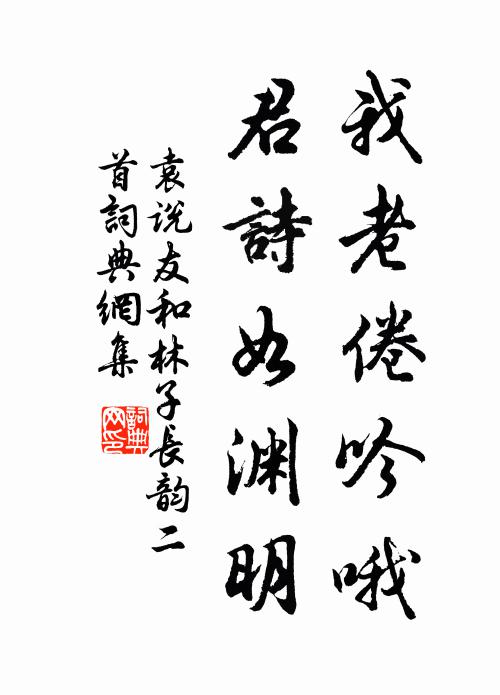 我老倦吟哦
君詩如渊明
袁说友和林子長韵二
首詞典網集
詞典
网印